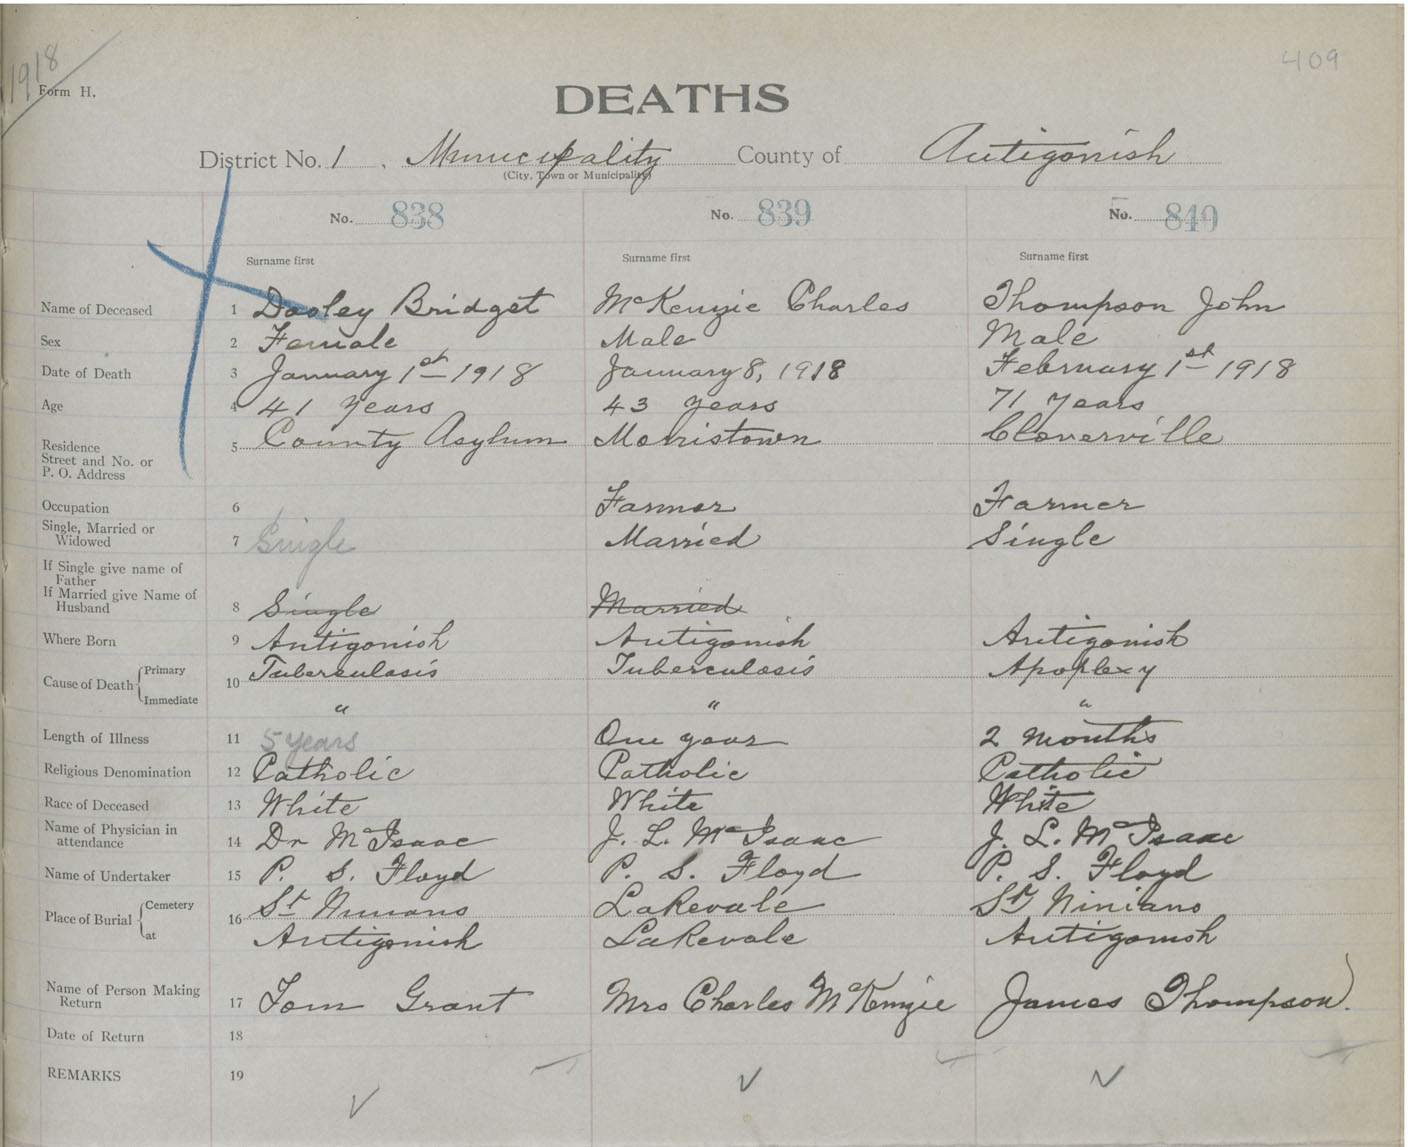 1918
409
Form H.
DEATHS
District No. 1, Municipality County of Antigonish
(City, Town or Municipality)
No. 838 No. 839 No. 840
Surname first Surname first Surname first
Name of Deceased 1 Dooley Bridget McKenzie Charles Thompson John
Sex 2 Female Male Male
Date of Death 3 January 1st 1918 January 8, 1918 February 1st 1918
Age 4 41 years 43 years 71 years
Residence
Street and No. or
P. O. Address
5 County Asylum Morristown Cloverville
Occupation 6 Farmer Farmer
Single, Married or
Widowed
7 Single Married Single
If Single give name of
Father
If Married give Name of
Husband
8 Single Married
Where Born 9 Antigonish Antigonish Antigonish
Cause of Death Primary
Immediate
10 Tuberculosis Tuberculosis Apoplexy
" " "
Length of Illness 11 5 years One year 2 months
Religious Denomination 12 Catholic Catholic Catholic
Race of Deceased 13 White White White
Name of Physician in
attendance
14 Dr McIsaac J. L. McIsaac J. L. McIsaac
Name of Undertaker 15 P. S. Floyd P. S. Floyd P. S. Floyd
Place of Burial Cemetery
at
16 St Ninians Lakevale St Ninians
Antigonish Lakevale Antigonish
Name of Person Making
Return
17 Tom Grant Mrs Charles McKenzie James Thompson.
Date of Return 18
REMARKS 19